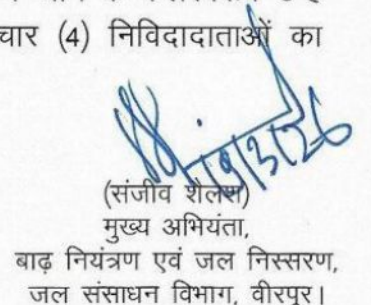 चार (4) निविदादाताओं का
19/3/26
(संजीव शैलेश)
मुख्य अभियंता,
बाढ़ नियंत्रण एवं जल निस्सरण,
जल संसाधन विभाग, वीरपुर।